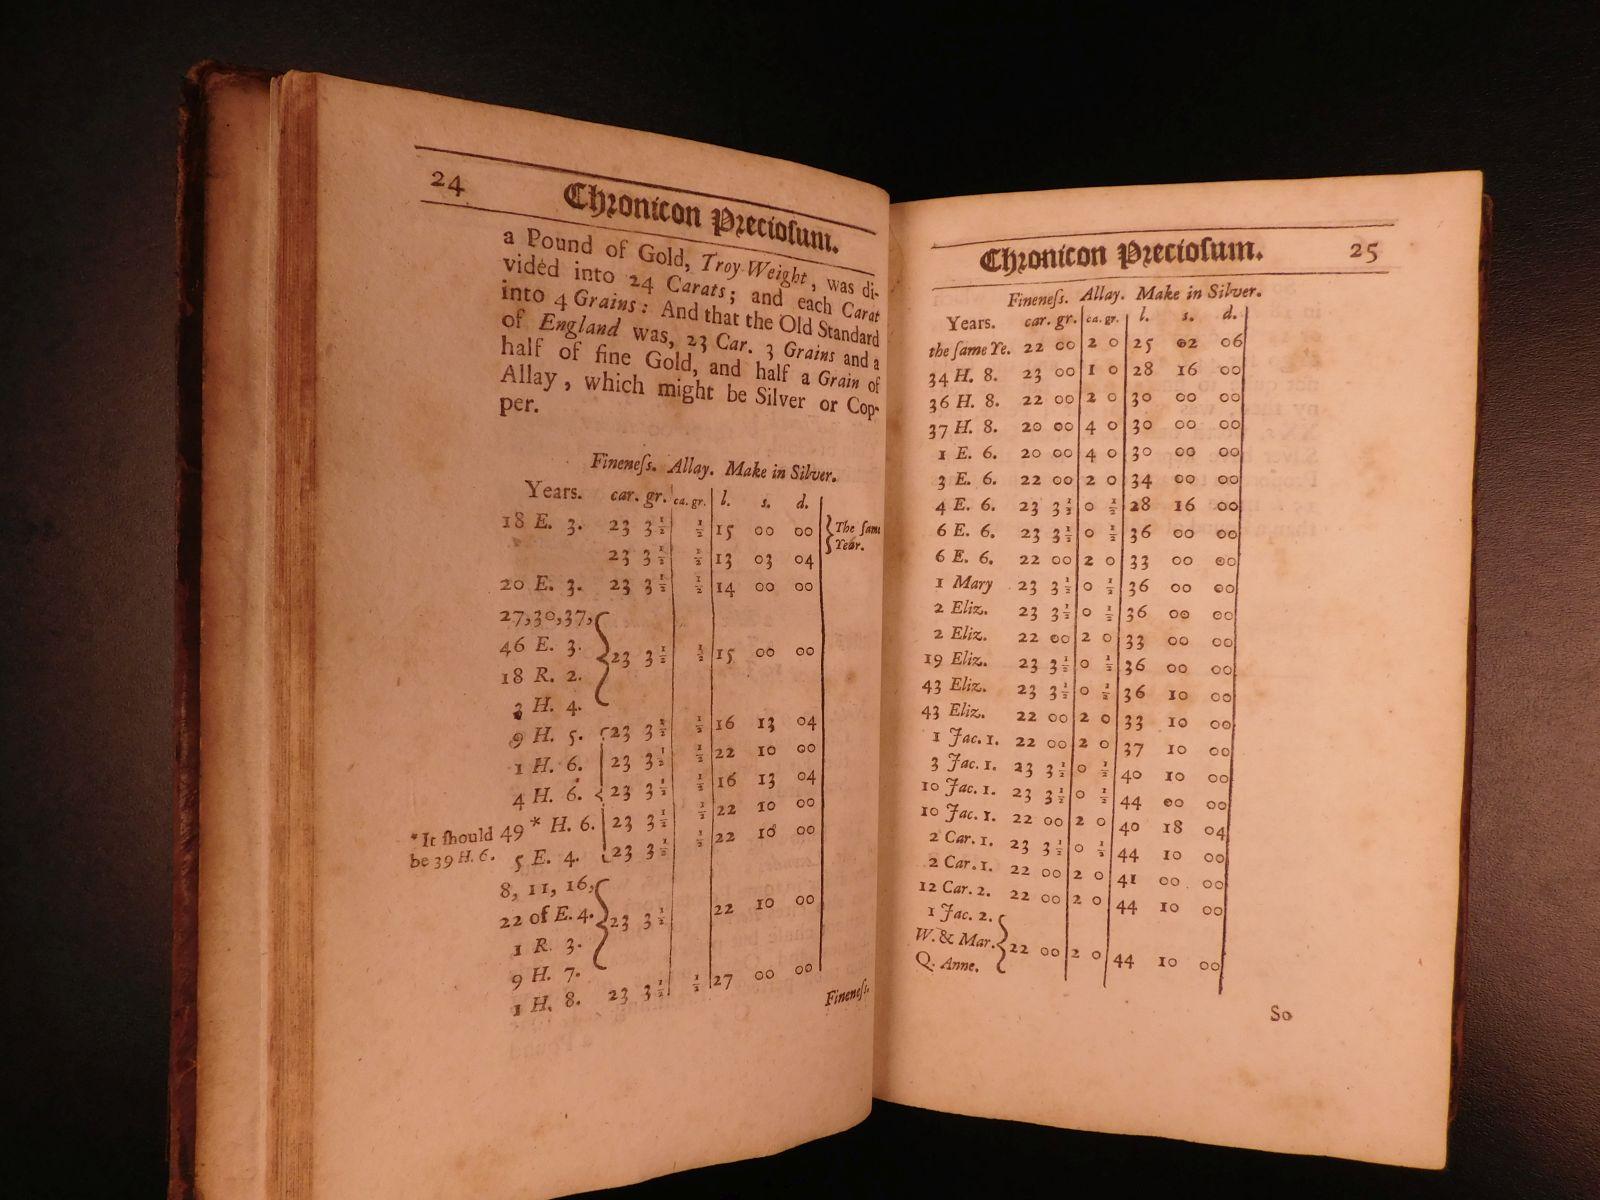 24 Chronicon Precioſum.
a Pound of Gold, Troy Weight, was di-
vided into 24 Carats; and each Carat
into 4 Grains: And that the Old Standard
of England was, 23 Car. 3 Grains and a
half of fine Gold, and half a Grain of
Allay, which might be Silver or Cop-
per.
Fineneſs. Allay. Make in Silver.
Years. car. gr. ca. gr. l. s. d.
18 E. 3. 23 3½ ½ 15 00 00 } The ſame
23 3½ ½ 13 03 04 Year.
20 E. 3. 23 3½ ½ 14 00 00
27,30,37,
46 E. 3. } 23 3½ ½ 15 00 00
18 R. 2.
3 H. 4.
9 H. 5. 23 3½ ½ 16 13 04
1 H. 6. 23 3½ ½ 22 10 00
4 H. 6. 23 3½ ½ 16 13 04
*It ſhould 49 * H. 6. 23 3½ ½ 22 10 00
be 39 H. 6. 5 E. 4. 23 3½ ½ 22 10 00
8, 11, 16,
22 of E. 4. } 23 3½ 22 10 00
1 R. 3.
9 H. 7.
1 H. 8. 23 3½ ½ 27 00 00
Fineneſs.
Chronicon Precioſum. 25
Fineneſs. Allay. Make in Silver.
Years. car. gr. ca. gr. l. s. d.
the ſame Ye. 22 00 2 0 25 02 06
34 H. 8. 23 00 1 0 28 16 00
36 H. 8. 22 00 2 0 30 00 00
37 H. 8. 20 00 4 0 30 00 00
1 E. 6. 20 00 4 0 30 00 00
3 E. 6. 22 00 2 0 34 00 00
4 E. 6. 23 3½ 0 ½ 28 16 00
6 E. 6. 23 3½ 0 ½ 36 00 00
6 E. 6. 22 00 2 0 33 00 00
1 Mary 23 3½ 0 ½ 36 00 00
2 Eliz. 23 3½ 0 ½ 36 00 00
2 Eliz. 22 00 2 0 33 00 00
19 Eliz. 23 3½ 0 ½ 36 00 00
43 Eliz. 23 3½ 0 ½ 36 10 00
43 Eliz. 22 00 2 0 33 10 00
1 Jac. 1. 22 00 2 0 37 10 00
3 Jac. 1. 23 3½ 0 ½ 40 10 00
10 Jac. 1. 23 3½ 0 ½ 44 00 00
10 Jac. 1. 22 00 2 0 40 18 04
2 Car. 1. 23 3½ 0 ½ 44 10 00
2 Car. 1. 22 00 2 0 41 00 00
12 Car. 2. 22 00 2 0 44 10 00
1 Jac. 2.
W. & Mar. } 22 00 2 0 44 10 00
Q. Anne.
So